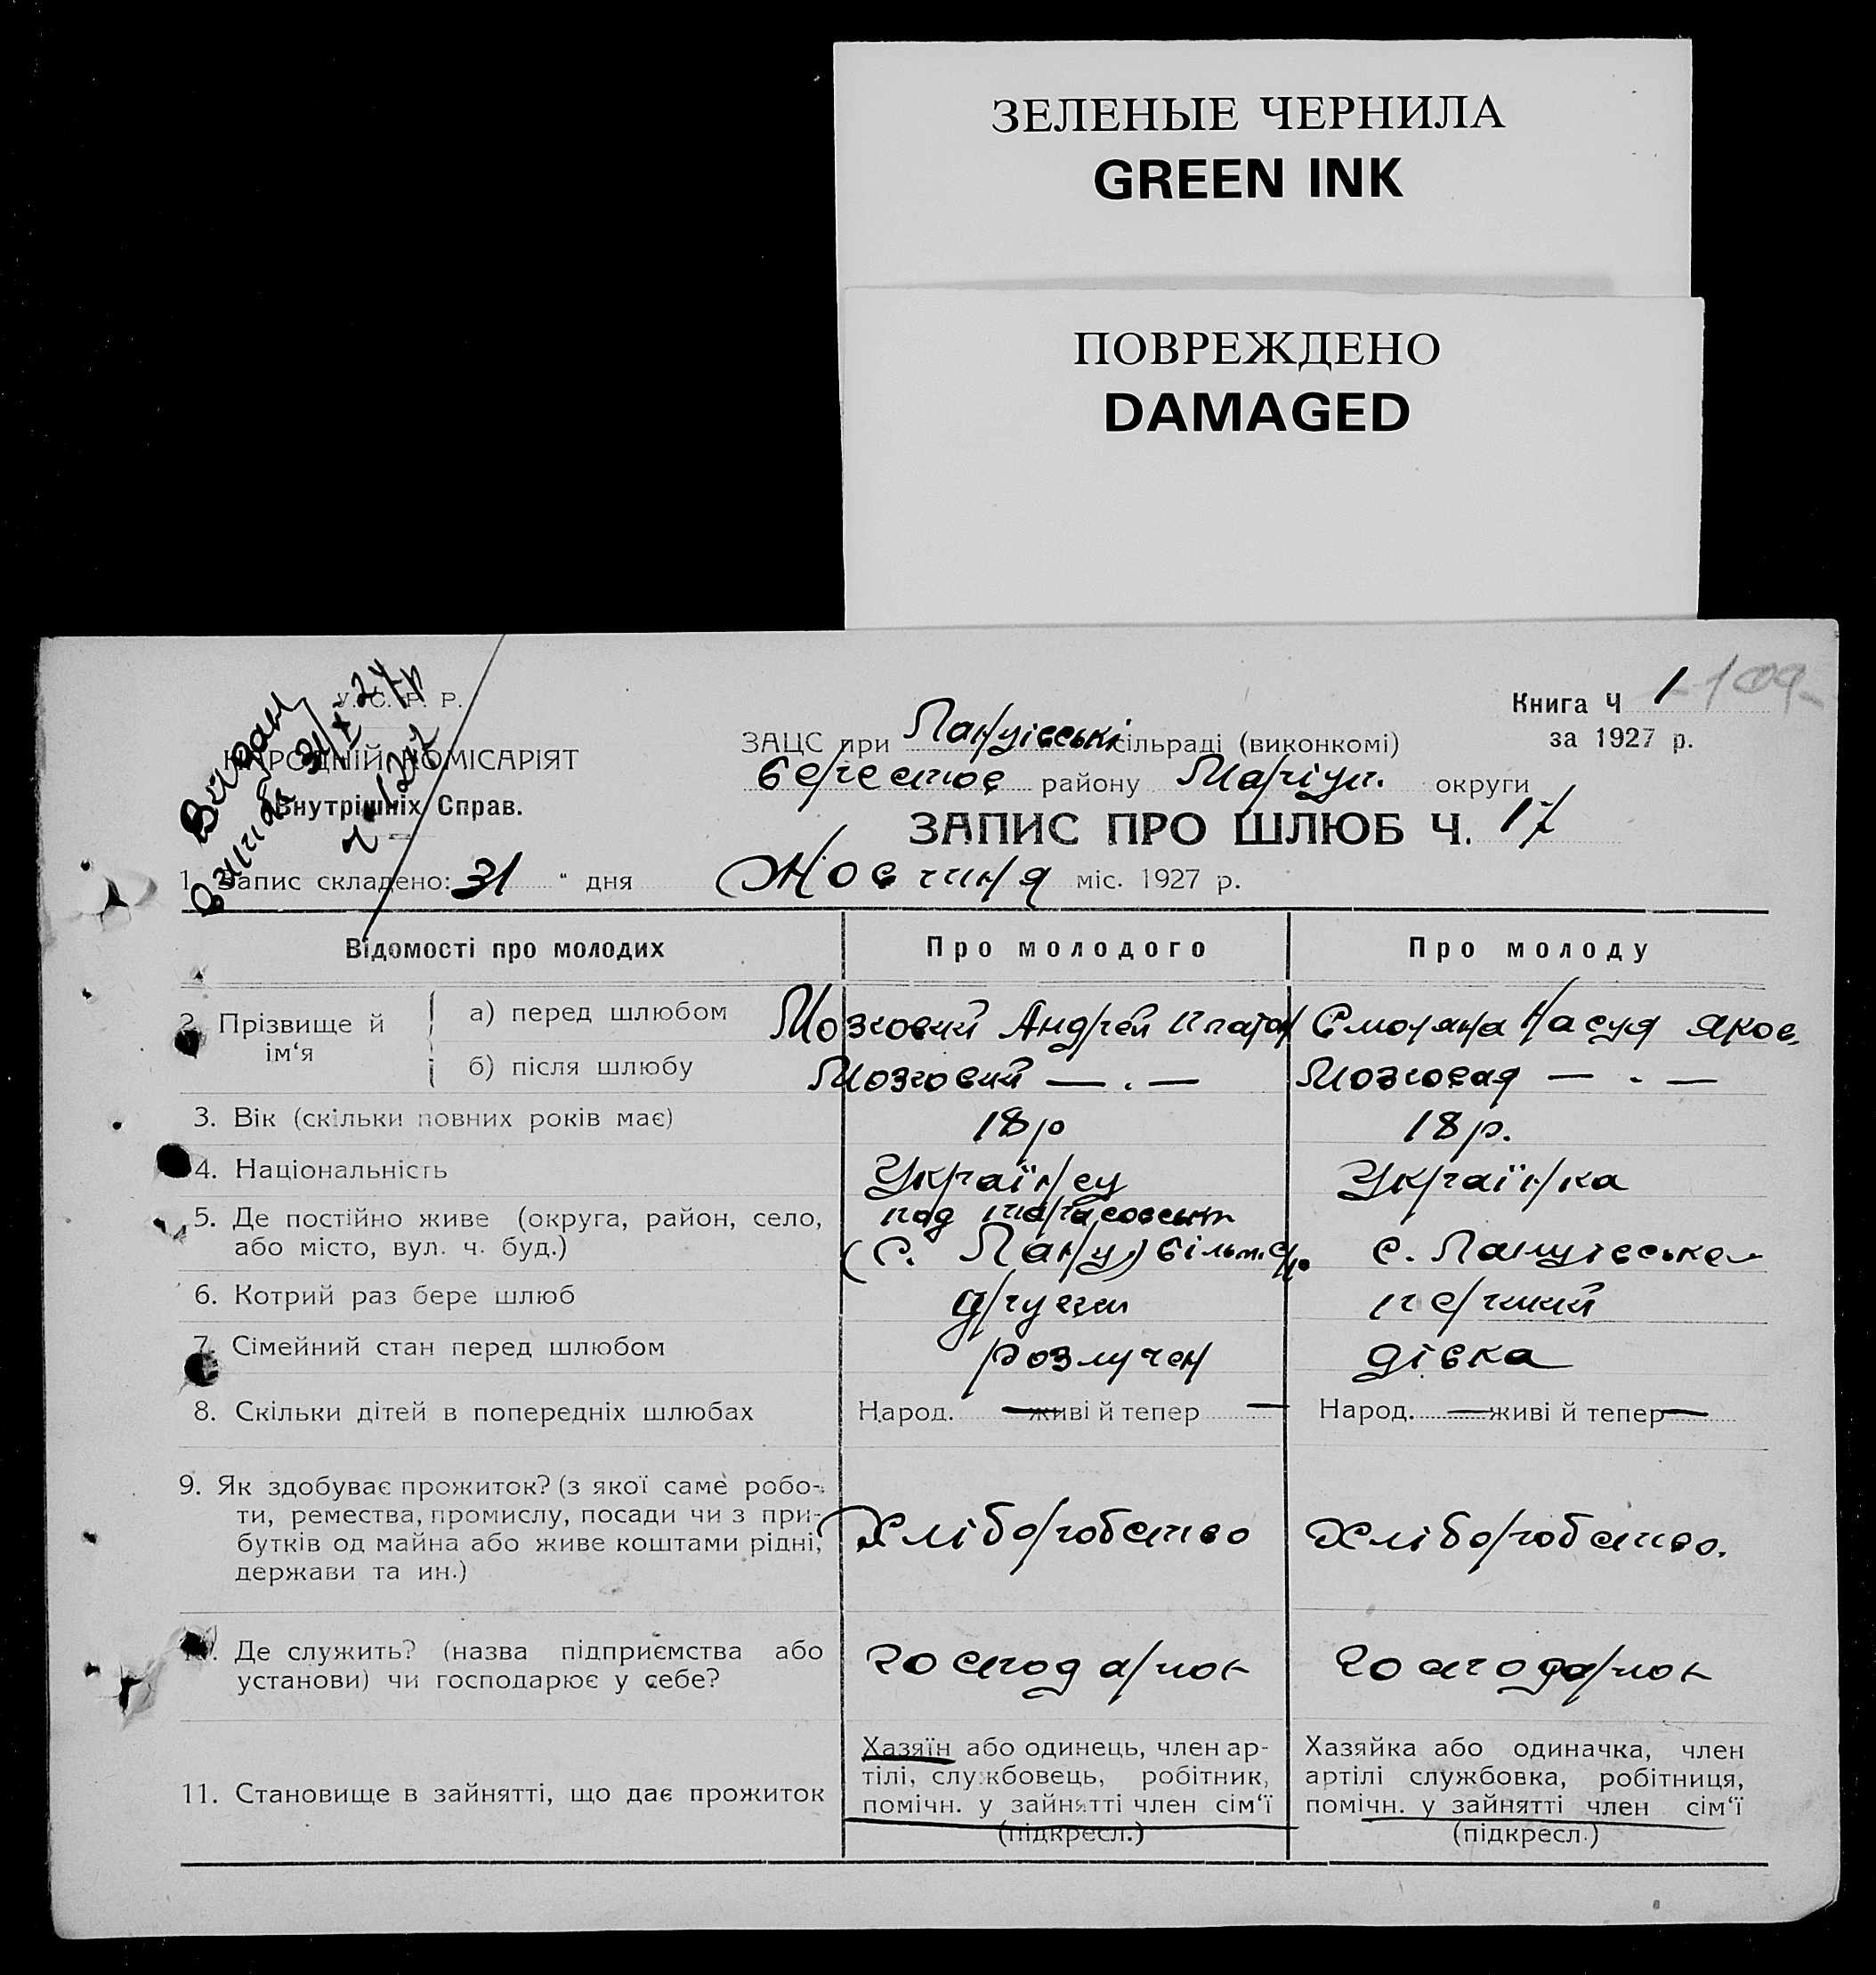 ЗЕЛЕНЫЕ ЧЕРНИЛА
GREEN INK
ПОВРЕЖДЕНО
DAMAGED
У. С. Р. Р.
НАРОДНІЙ КОМІСАРІЯТ
Внутрішніх Справ.
Видан
31/X 27р
Книга Ч 1 109
за 1927 р.
ЗАЦС при сільраді (виконкомі)
району Маріуп. округи
ЗАПИС ПРО ШЛЮБ Ч. 17
1. Запис складено: 31 " дня Жовтня міс. 1927 р.
Відомості про молодих Про молодого Про молоду
2. Прізвище й ім‘я
а) перед шлюбом Мозговий Андрей Платон Яков.
б) після шлюбу Мозговий — . — Мозговая — . —
3. Вік (скільки повних років має) 18р 18р.
4. Національність Українец Українка
5. Де постійно живе (округа, район, село,
або місто, вул. ч. буд.) с.
6. Котрий раз бере шлюб другий первий
7. Сімейний стан перед шлюбом розлучен дівка
8. Скільки дітей в попередніх шлюбах Народ. — живі й тепер — Народ. — живі й тепер —
9. Як здобуває прожиток? (з якої саме робо-
ти, ремества, промислу, посади чи з при-
бутків од майна або живе коштами рідні,
держави та ин.) Хліборобство Хліборобство.
10. Де служить? (назва підприємства або
установи) чи господарює у себе?
11. Становище в зайнятті, що дає прожиток
Хазяїн або одинець, член ар-
тілі, службовець, робітник,
помічн. у зайнятті член сім‘ї
(підкресл.)
Хазяйка або одиначка, член
артілі службовка, робітниця,
помічн. у зайнятті член сім‘ї
(підкресл.)